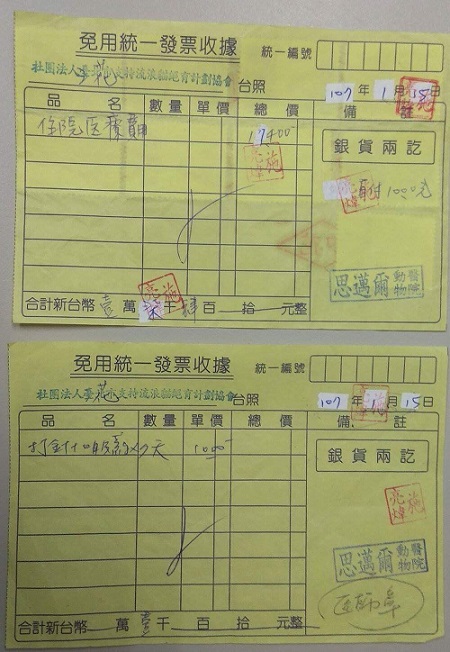 免用統一發票收據
統一編號
社團法人臺北市支持流浪貓絕育計劃協會 台照
107年1月15日
品名 數量 單價 總價 備註
住院医療費用 17400
銀貨兩訖
1000元
思邁爾動物醫院
合計新台幣壹萬柒千肆百拾元整
免用統一發票收據
統一編號
社團法人臺北市支持流浪貓絕育計劃協會 台照
107年1月15日
品名 數量 單價 總價 備註
打針+口服藥 1000
銀貨兩訖
思邁爾動物醫院
医師章
合計新台幣萬壹千百拾元整